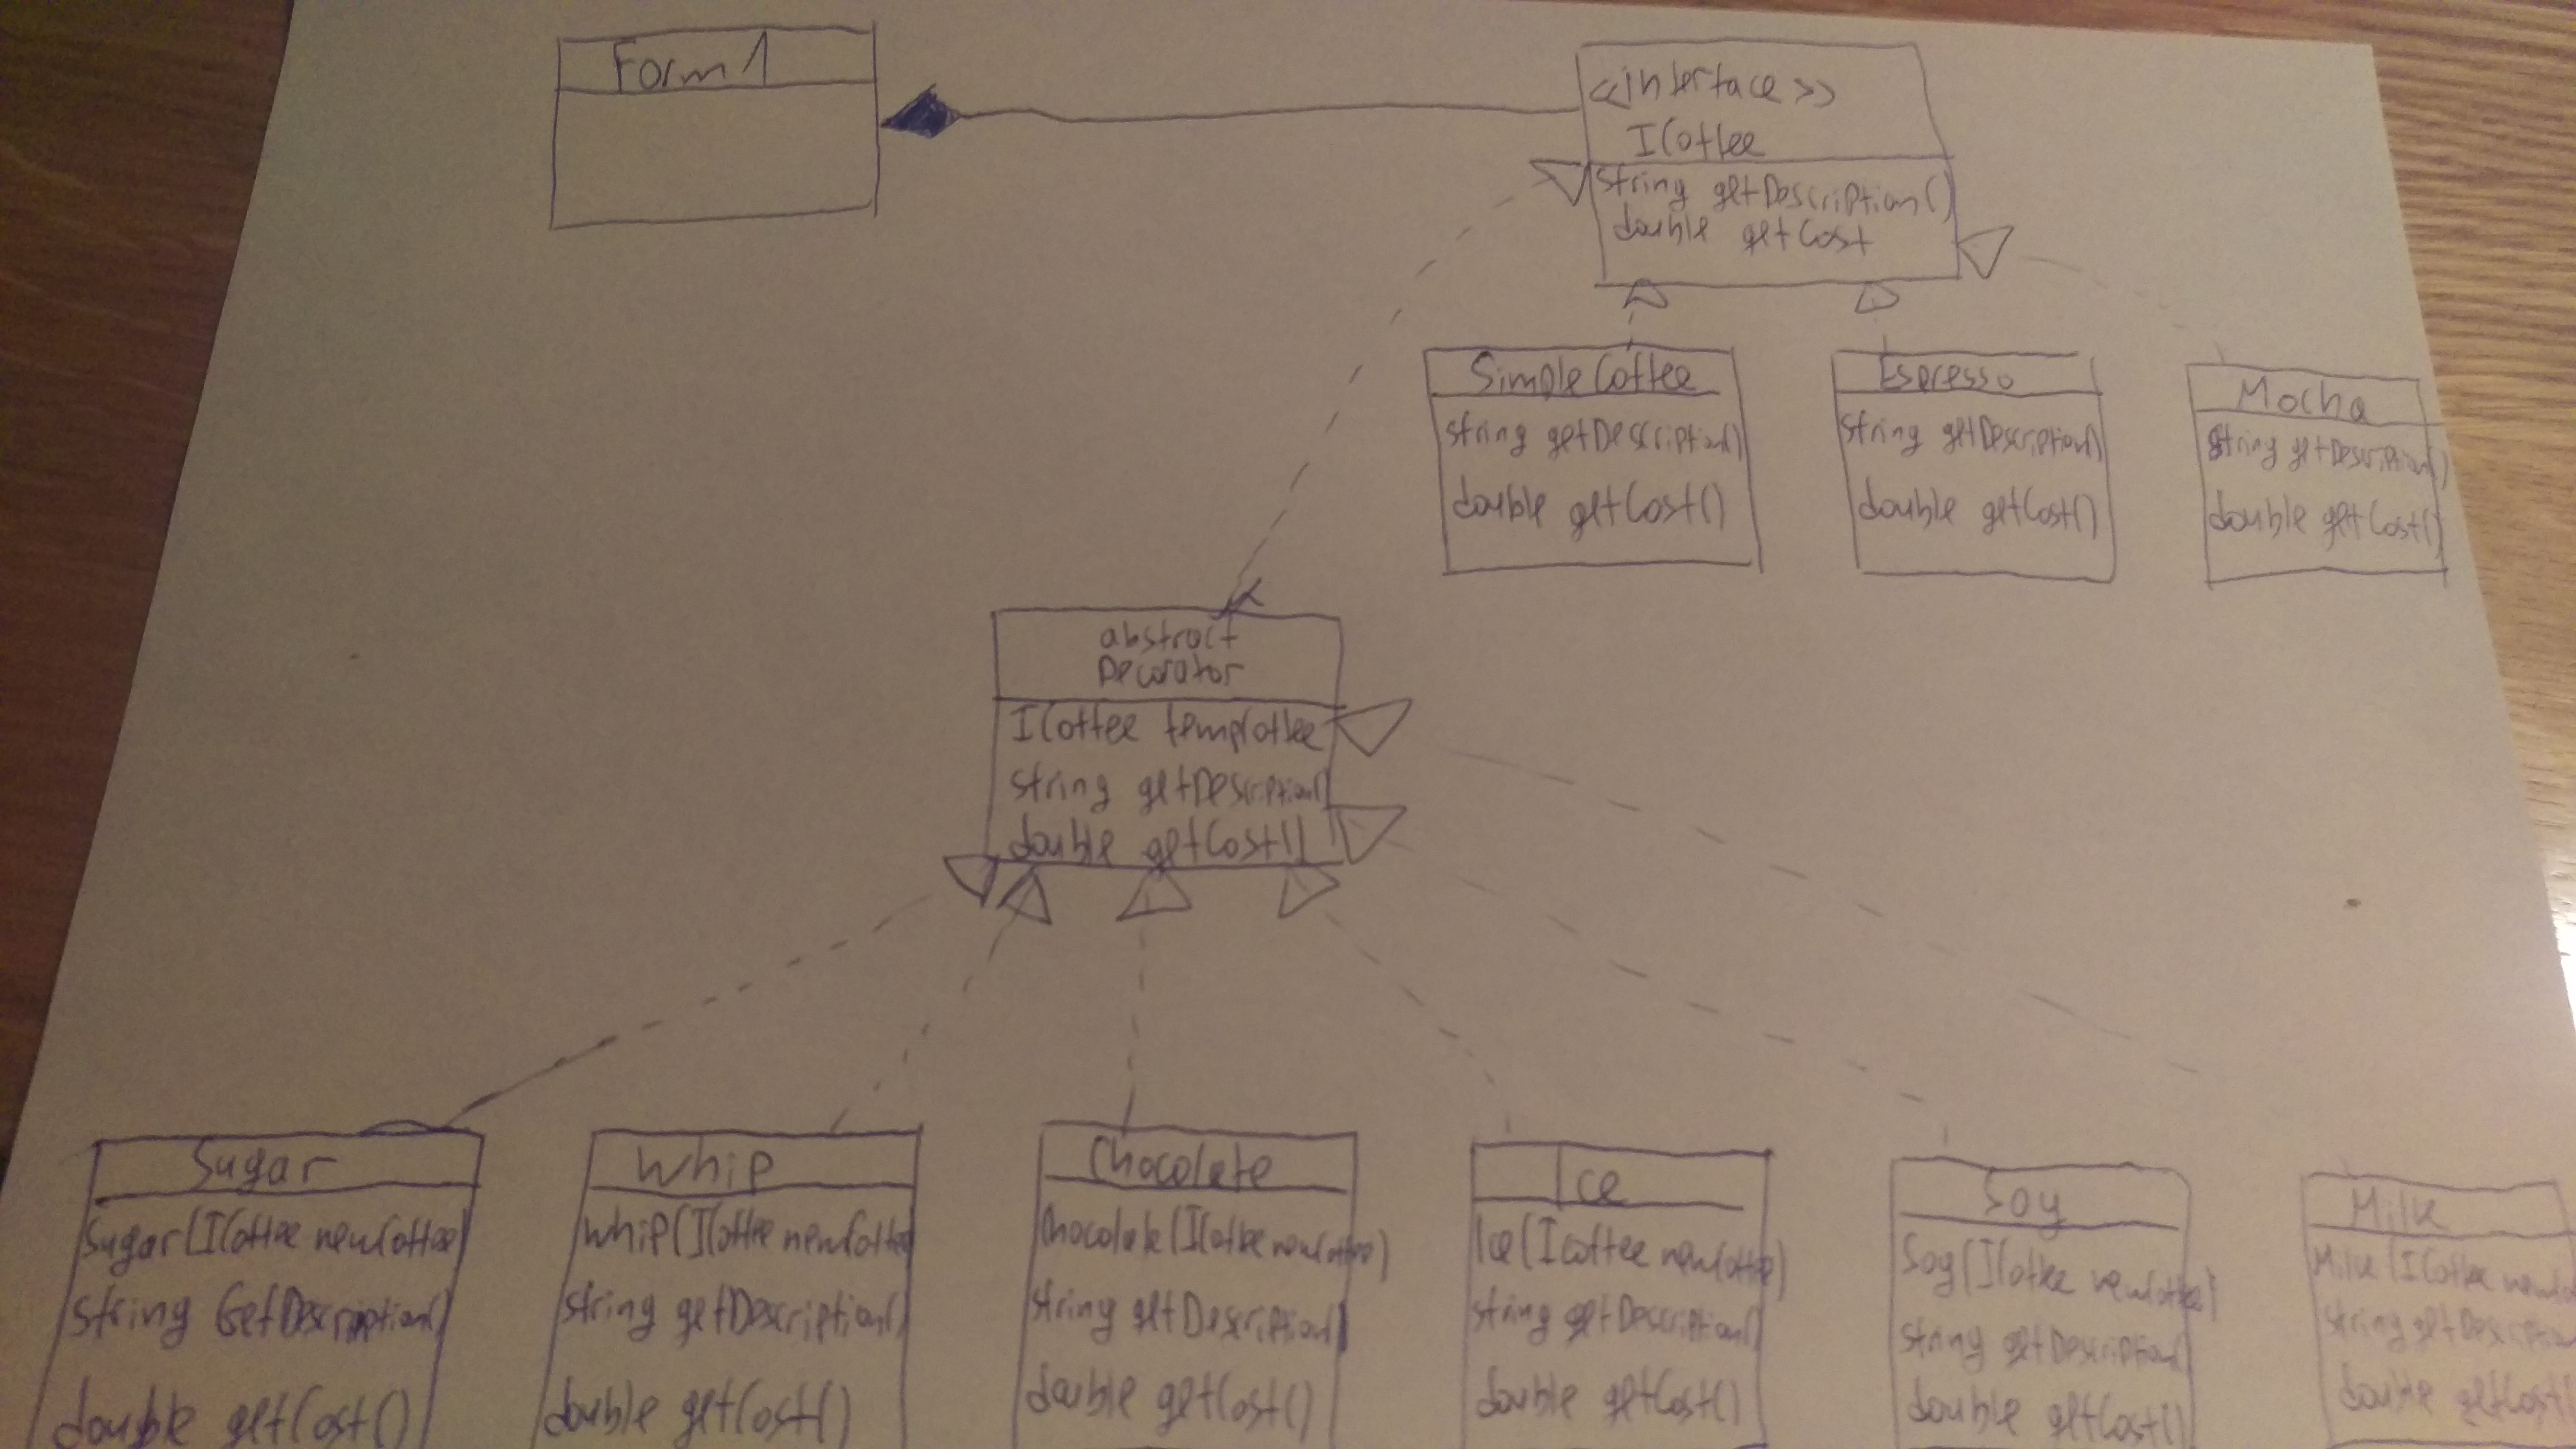 Form1
<<interface>>
ICoffee
string getDescription()
double getCost
SimpleCoffee
string getDescription()
double getCost()
Espresso
string getDescription()
double getCost()
Mocha
string getDescription()
double getCost()
abstract
Decorator
ICoffee tempCoffee
string getDescription()
double getCost()
Sugar
Sugar(ICoffee newCoffee)
string GetDescription()
double getCost()
Whip
Whip(ICoffee newCoffee
string getDescription()
double getCost()
Chocolate
Chocolate(ICoffee newCoffee)
string getDescription()
double getCost()
Ice
Ice(ICoffee newCoffee)
string getDescription()
double getCost()
Soy
Soy(ICoffee newCoffee)
string getDescription()
double getCost()
Milk
Milk(ICoffee
string
double getCost(